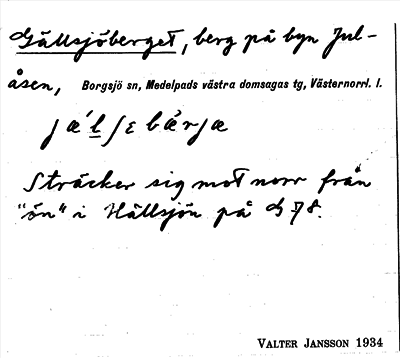 Gällsjöberget, berg på byn Jul-
åsen, Borgsjö sn, Medelpads västra domsagas tg, Västernorrl. l.
Sträcker sig mot norr från
"ön" i Hällsjön på G 78.
VALTER JANSSON 1934